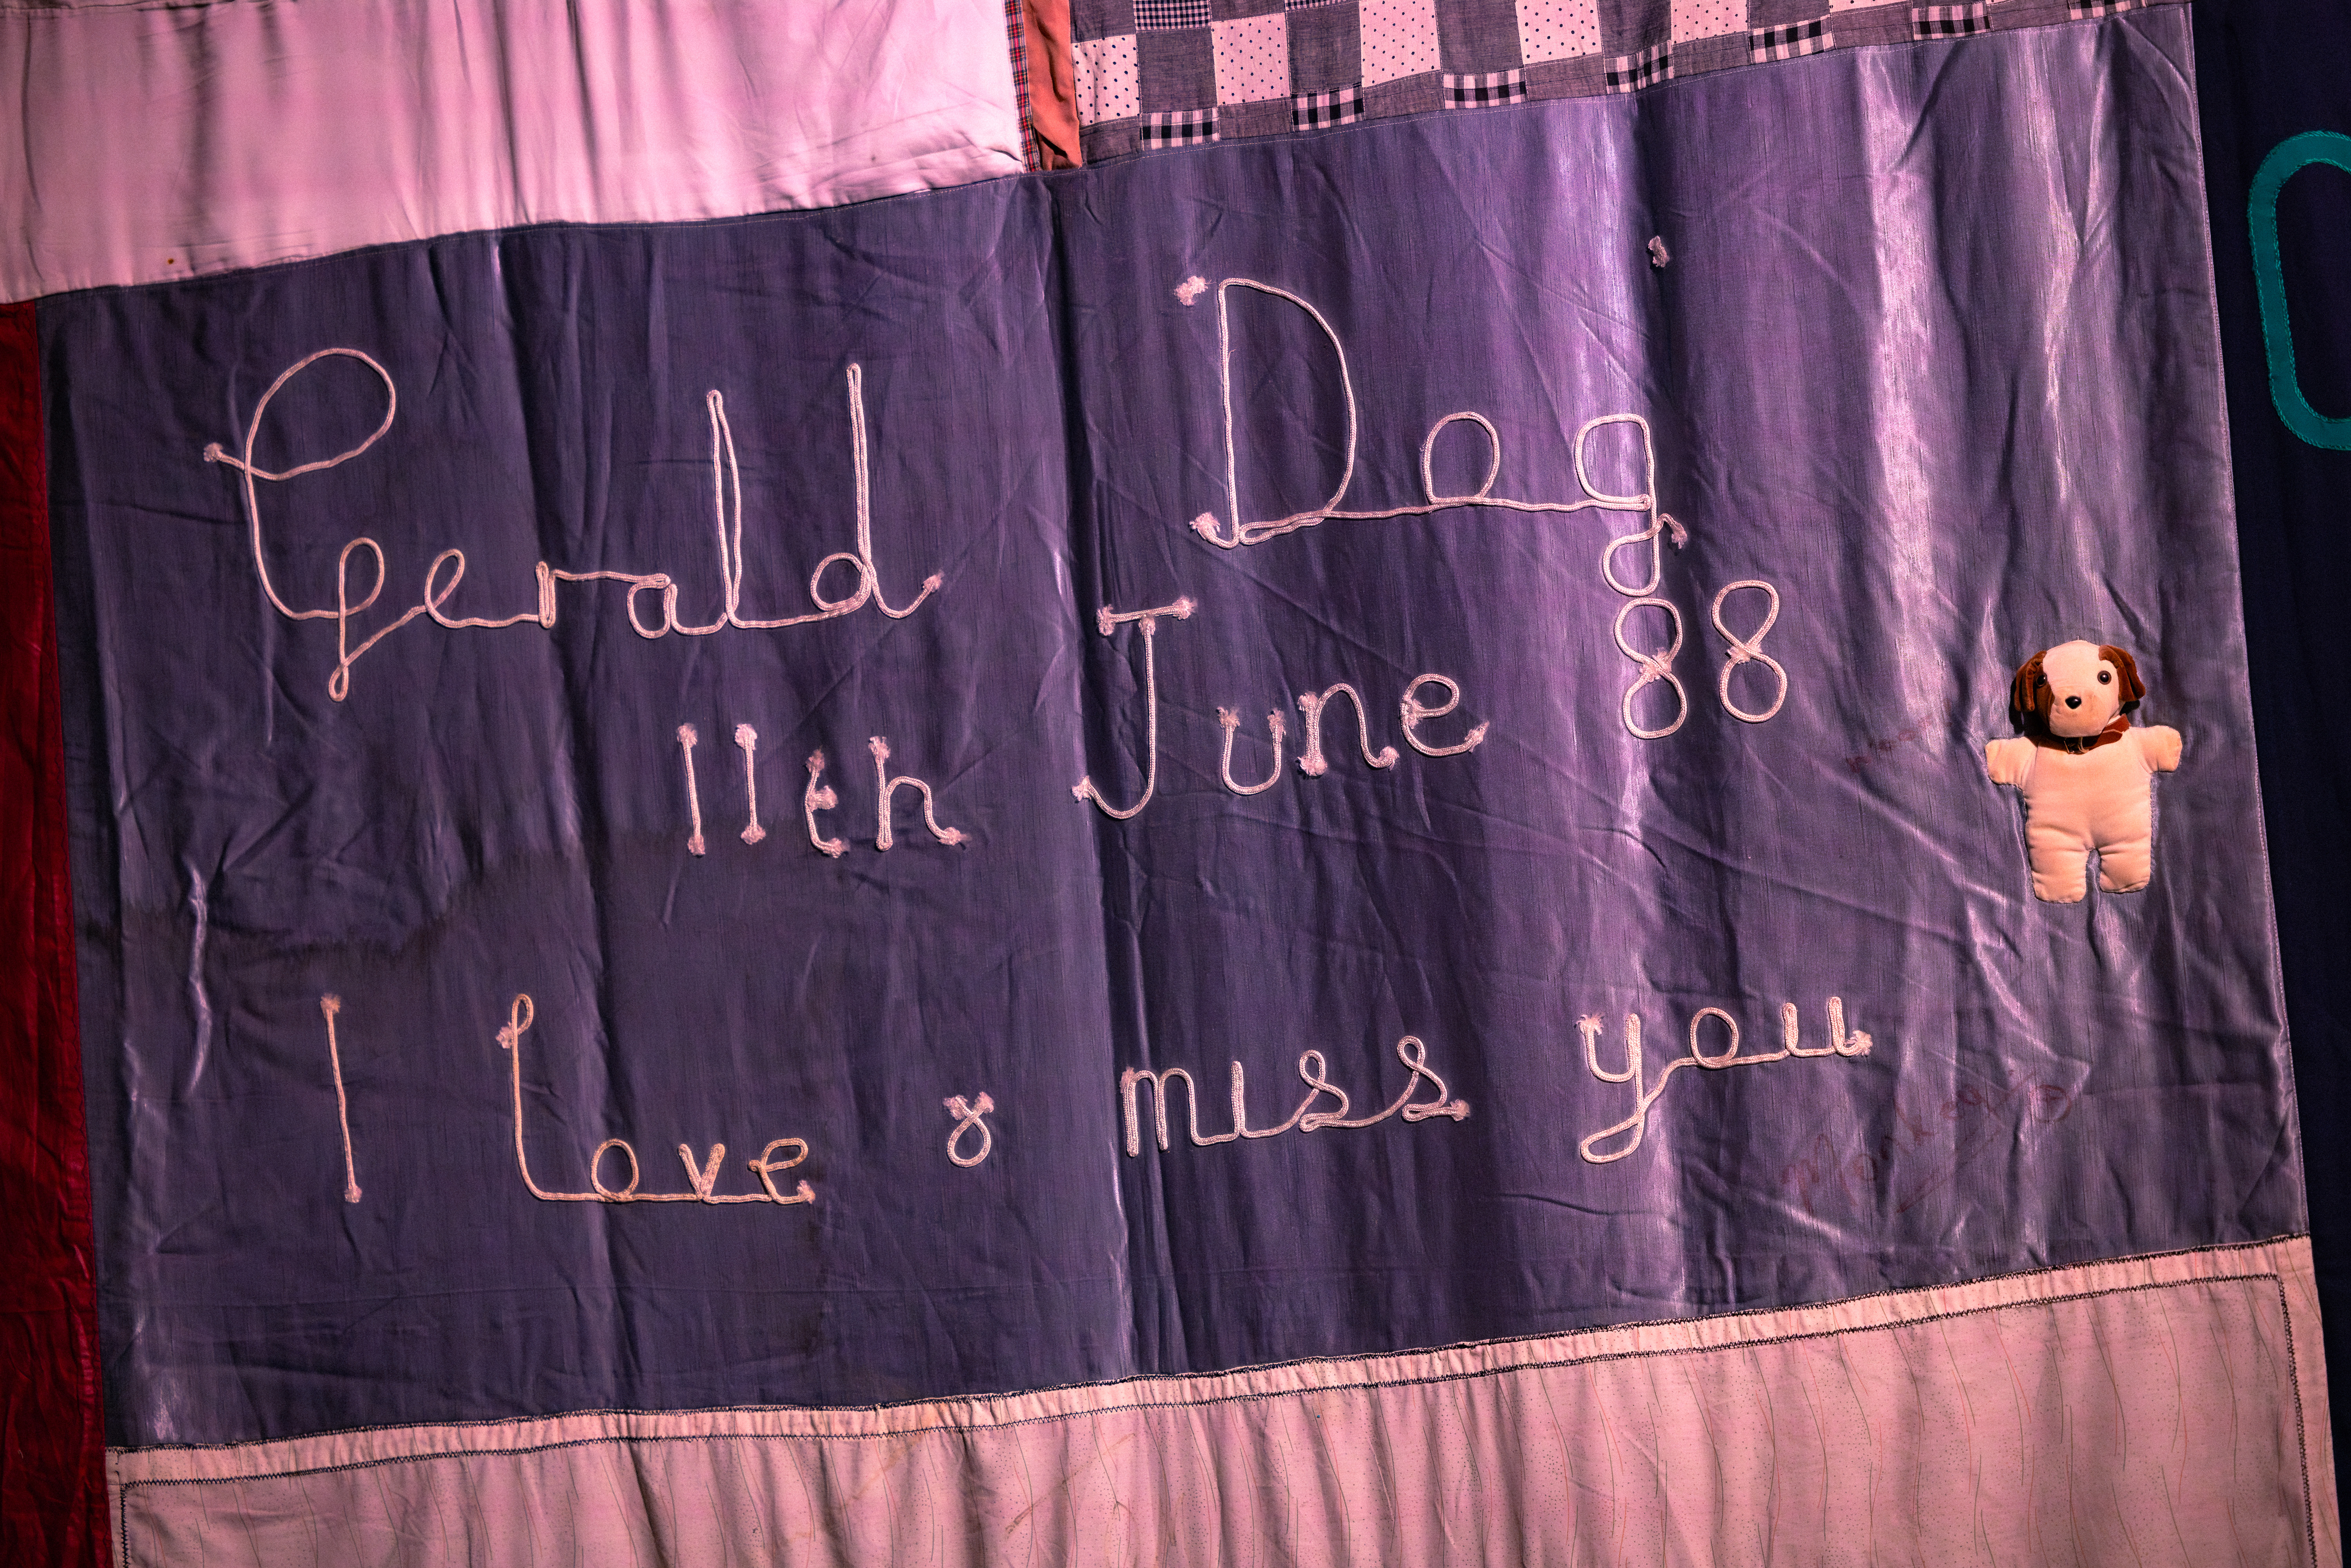 Gerald Dog
11th June 88
I Love & miss you